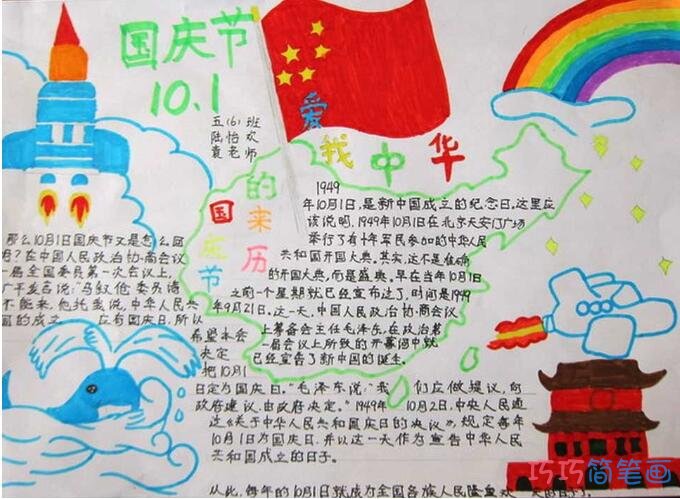 国庆节
10.1
五(6)班
陆怡欢
袁老师
爱我中华
国庆节的来历
1949
年10月1日,是新中国成立的纪念日。这里应
该说明,1949年10月1日在北京天安门广场
举行了有十年军民参加的中华人民
共和国开国大典。其实,这不是准确
的开国大典,而是盛典。早在当年10月1日
之前一个星期就已经宣布过了,时间是1949
年9月21日。这一天,中国人民政治协商会议
上筹备会主任毛泽东,在政治第
一届会议上所致的开幕语中就
已经宣告了新中国的诞生。
那么10月1日国庆节又是怎么回
在中国人民政治协商会议
届全国委员第一次会议上,
说:"马叙伦委员请
不能来,他托我说,中华人民共
国的成立 应有国庆日,所以
希望本会
决定
把10月1
日定为国庆日。"毛泽东说:"我们应做提议,向
政府建议,由政府决定。"1949年10月2日,中央人民通
过《关于中华人民共和国庆日的决议》,规定每年
10月1日为国庆日,并以这一天作为宣告中华人民
共和国成立的日子。
从此,每年的10月1日就成为全国各族人民隆重欢
巧巧简笔画